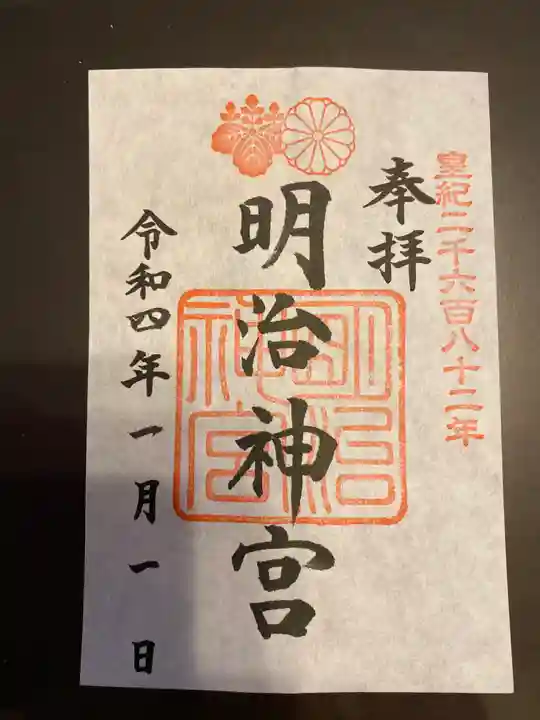 皇紀二千六百八十二年
奉拝
明治神宮
明治神宮
令和四年一月一日